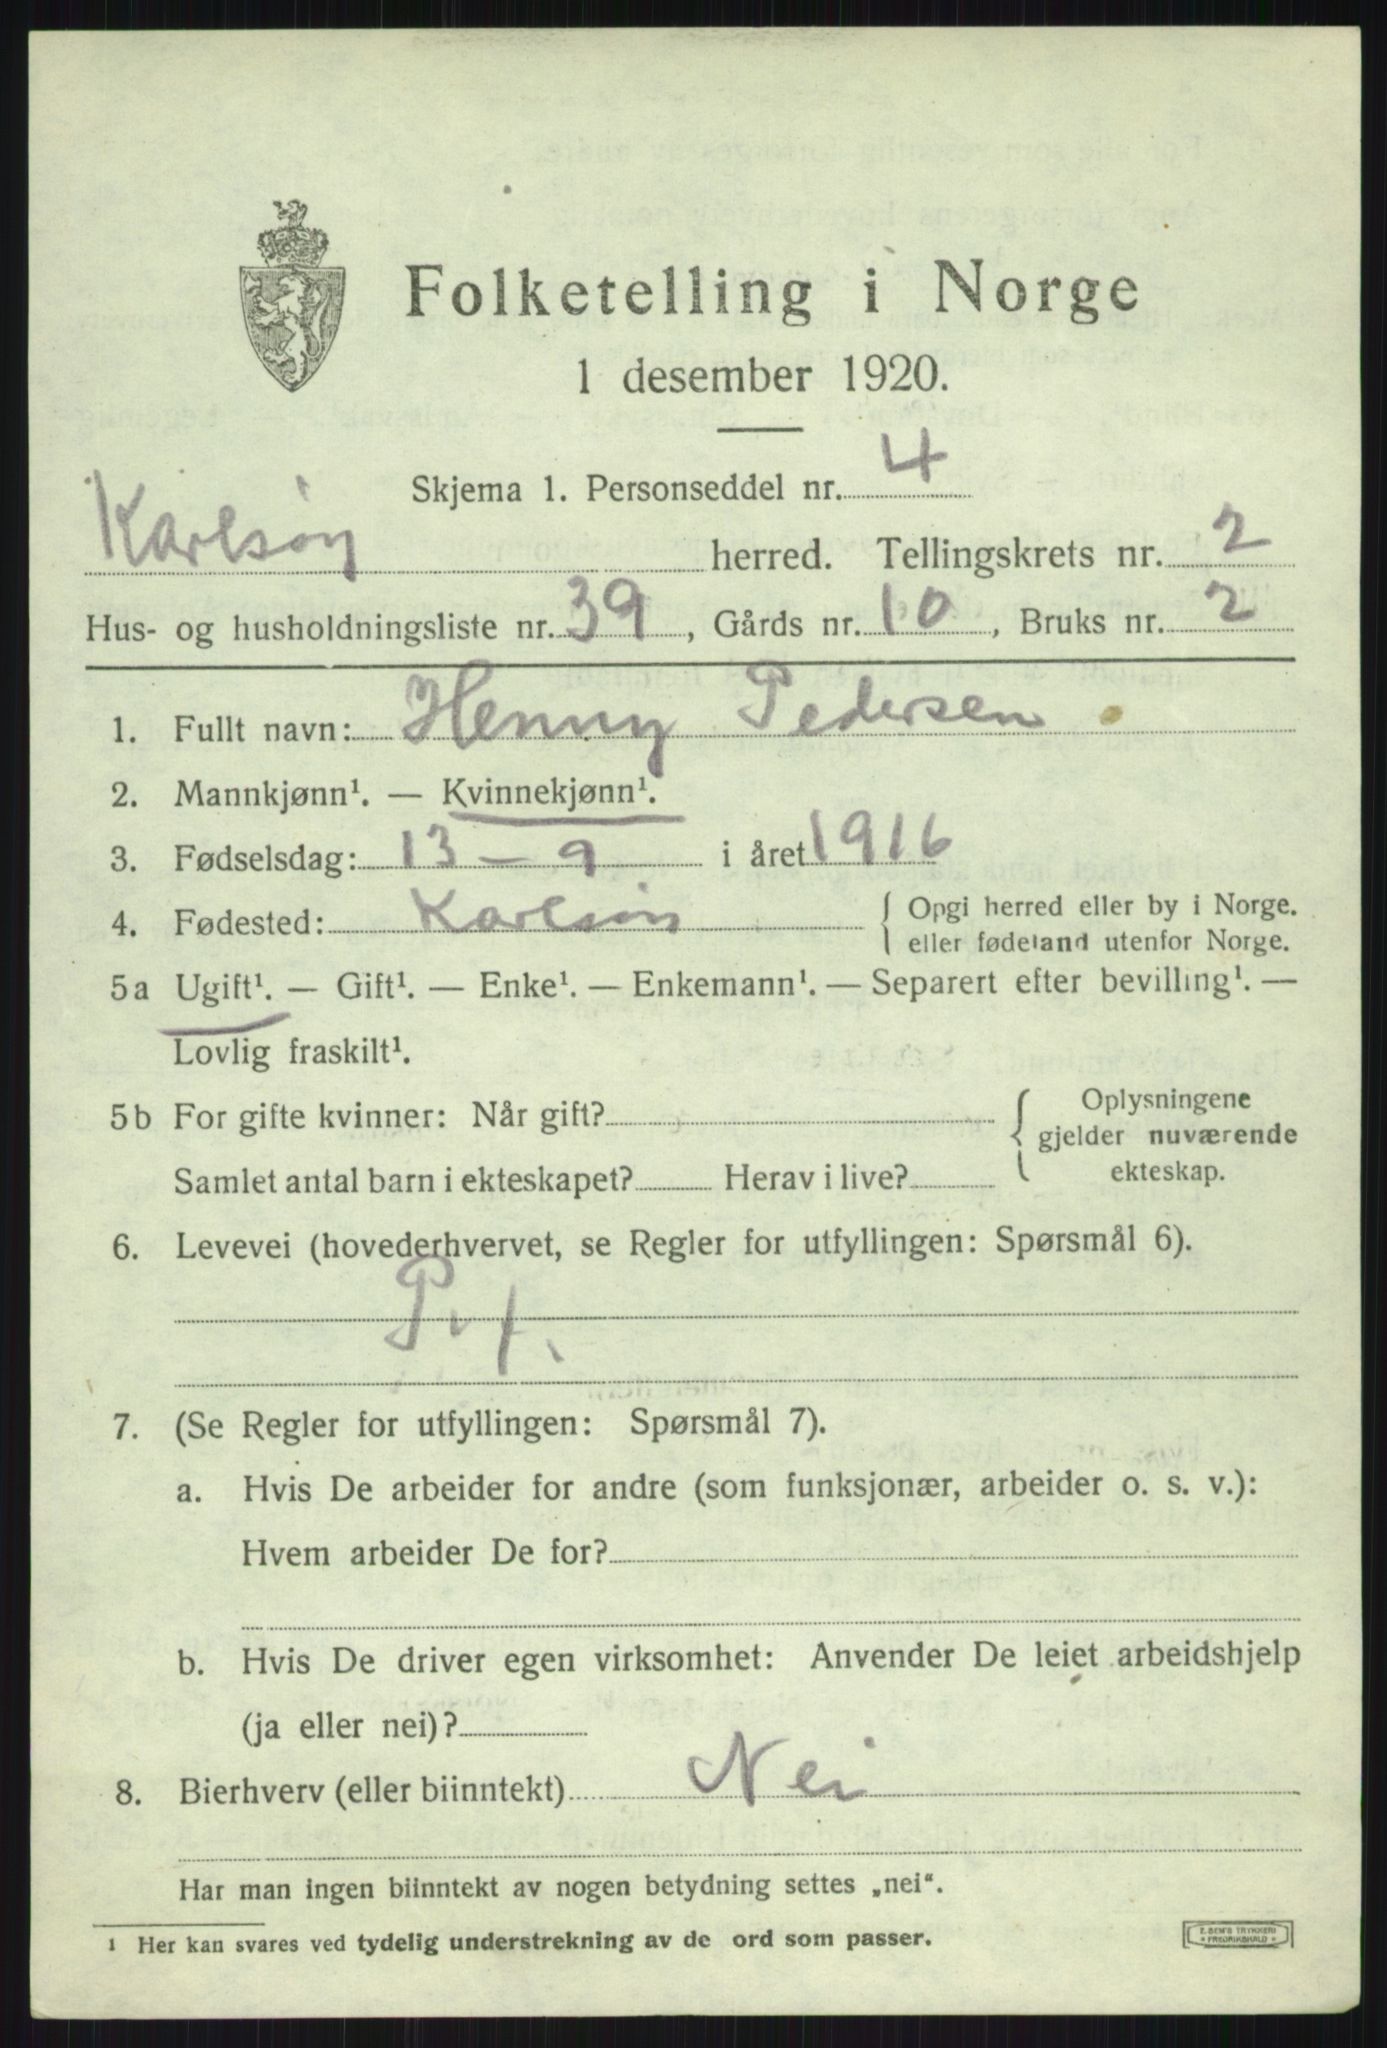 Folketelling i Norge
1 desember 1920.
Skjema 1. Personseddel nr. 4
Karlsøy herred. Tellingskrets nr. 2
Hus- og husholdningsliste nr. 39, Gårds nr. 10, Bruks nr. 2
1. Fullt navn: Henny Pedersen
2. Mannkjønn¹. — Kvinnekjønn¹.
3. Fødselsdag: 13 – 9 i året 1916
4. Fødested: Karlsøy { Opgi herred eller by i Norge.
eller fødeland utenfor Norge.
5a Ugift¹. — Gift¹. — Enke¹. — Enkemann¹. — Separert efter bevilling¹. —
Lovlig fraskilt¹.
5b For gifte kvinner: Når gift? { Oplysningene
gjelder nuværende
Samlet antal barn i ekteskapet? Herav i live? ekteskap.
6. Levevei (hovederhvervet, se Regler for utfyllingen: Spørsmål 6).
7. (Se Regler for utfyllingen: Spørsmål 7).
a. Hvis De arbeider for andre (som funksjonær, arbeider o. s. v.):
Hvem arbeider De for?
b. Hvis De driver egen virksomhet: Anvender De leiet arbeidshjelp
(ja eller nei)?
8. Bierhverv (eller biinntekt) Nei
Har man ingen biinntekt av nogen betydning settes „nei“.
¹ Her kan svares ved tydelig understrekning av de ord som passer.
E. SEM'S TRYKKERI
* FREDRIKSHALD *